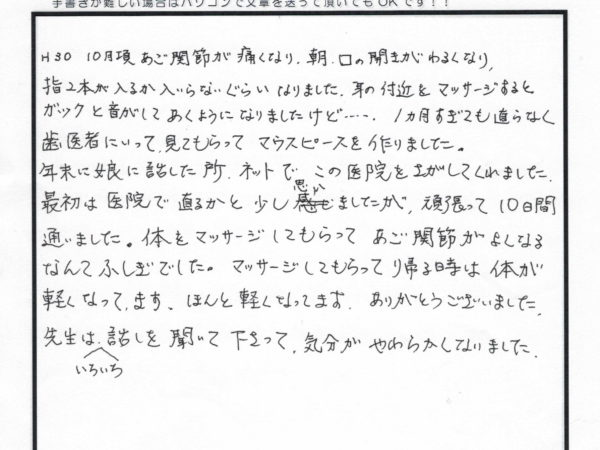 手書きが難しい場合はパソコンで文章を送って頂いてもOKです！！
H30 10月頃 あご関節が痛くなり、朝、口の開きがわるくなり、
指2本が入るか入いらないぐらいなりました。耳の付近をマッサージすると
ガックと音がしてあくようになりましたけど……、1ヵ月すぎても直らなく
歯医者にいって、見てもらって マウスピースを作りました。
年末に娘に話した所、ネットで、この医院をさがしてくれました。
最初は医院で直るかと少し思いましたが、頑張って10日間
通いました。体をマッサージしてもらって あご関節がよくなる
なんてふしぎでした。マッサージしてもらって り帰る時は体が
軽くなってます、ほんと軽くなってます。ありがとうございました。
先生は、いろいち話しを聞いて下さって、気分がやわらかくなりました。